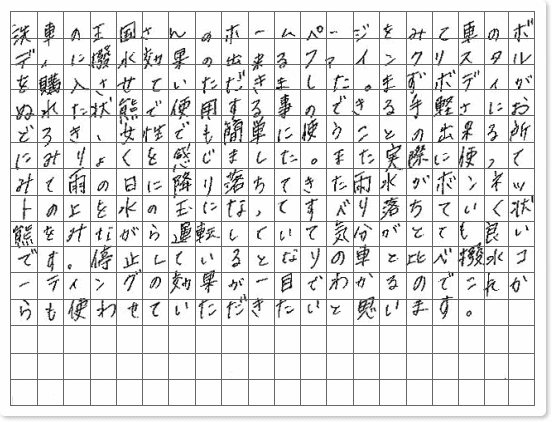 洗車の王国さんのホームページをみて車のボ
ディに撥水効果の出来るファインクリスタル
を購入させていただきました。まずボディが
ぬれた状態で使用する事のできる手軽さにお
どろき、女性でも簡単に使うことの出来る所
にみりょくを感じました。また実際に使って
みて雨の日に降り落ちてきた雨水がボンネッ
トの上を水の玉になってすべり落ちていく状
態をみながら運転していて気分がとても良い
です。停止しているとなりの車と比べ撥水コ
ーティングの効果が一目でわかるのでこれか
らも使わせていただきたいと思います。